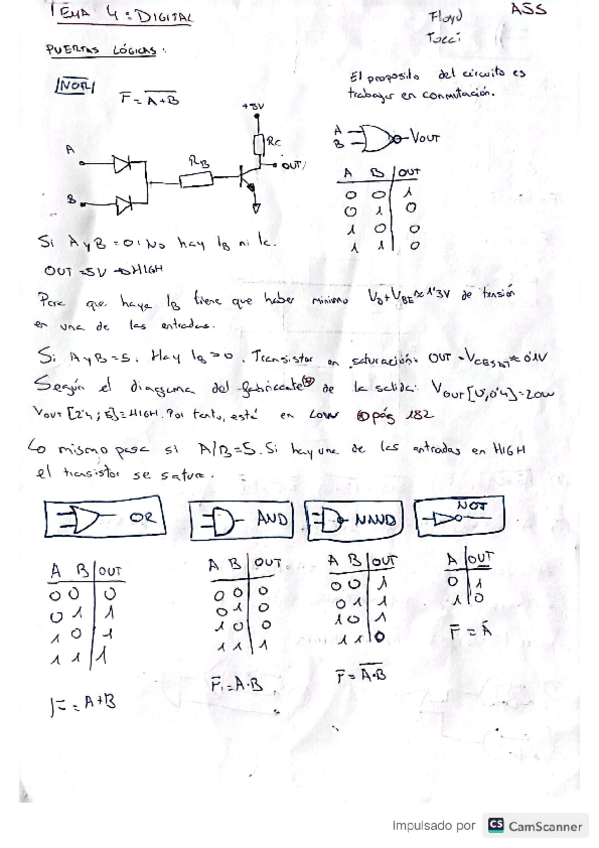 TEMA 4: DIGITAL
Floyd
Tocci
ASS
PUERTAS LÓGICAS:
NOR
F = A+B
El proposito del circuito es
trabajar en conmutación.
+5V
RC
A
RB
OUT
B
A
B
VOUT
A B OUT
0 0 1
0 1 0
1 0 0
1 1 0
Si A y B = 0: No hay IB ni Ic.
OUT = 5V → HIGH
Para que haya IB tiene que haber minimo VD + VBE ≈ 1'3V de tensión
en una de las entradas.
Si A y B = 5. Hay IB > 0. Transistor en saturación: OUT = VCESAT ≈ 0'1V
Según el diagrama del fabricante de la salida: VOUT [0,0'4] = LOW
VOUT [2'4; 5] = HIGH. Por tanto, está en LOW pág 182
Lo mismo pasa si A/B = 5. Si hay una de las entradas en HIGH
el transistor se satura.
OR
AND
NAND
NOT
A B OUT
0 0 0
0 1 1
1 0 1
1 1 1
F = A+B
A B OUT
0 0 0
0 1 0
1 0 0
1 1 1
F = A·B
A B OUT
0 0 1
0 1 1
1 0 1
1 1 0
F = A·B
A OUT
0 1
1 0
F = Ā
Impulsado por CS CamScanner